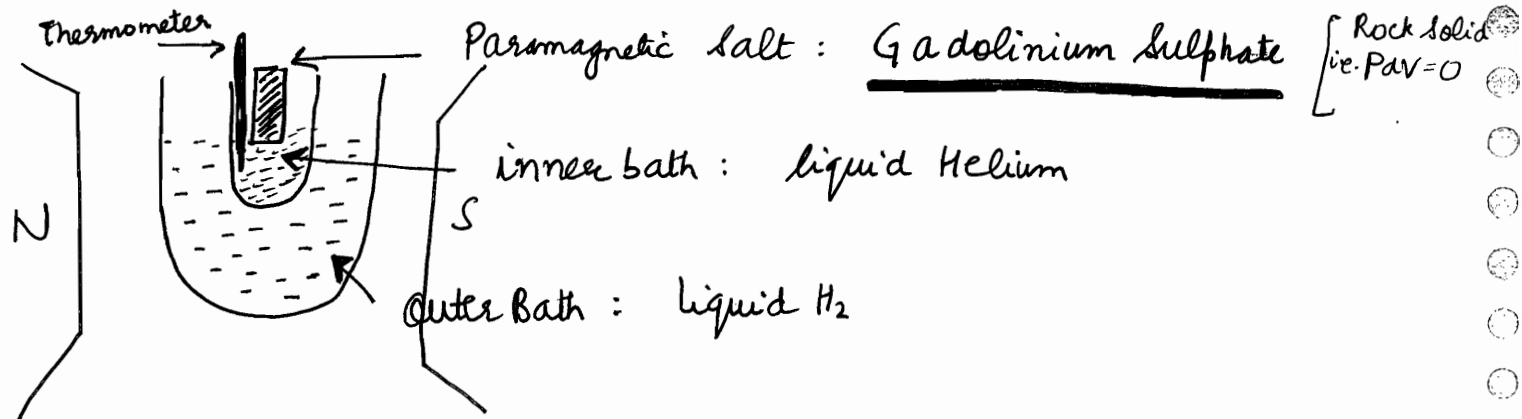 Thermometer
Paramagnetic Salt : Gadolinium Sulphate [Rock Solid
ie. PdV=0
inner bath : liquid Helium
N
S
Outer Bath : liquid H₂